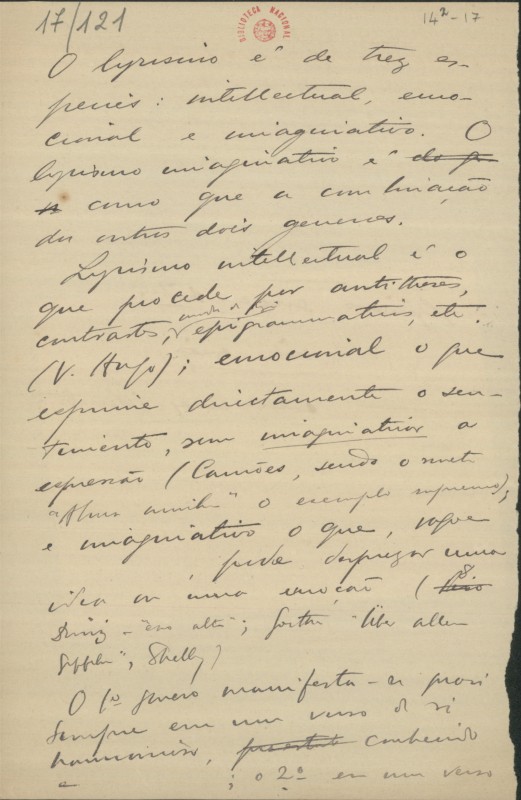 17/121
14²-17
BIBLIOTECA NACIONAL
O lyrismo é de trez es-
pecies: intellectual, emo-
cional e imaginativo. O
lyrismo imaginativo é
como que a combinação
dos outros dois generos.
Lyrismo intellectual é o
que procede por antitheses,
contrastes, epigrammaticos, etc.
(V. Hugo); emocional o que
exprime directamente o sen-
timento, sem a
expressão (Camões, sendo o soneto
"Alma minha" o exemplo supremo);
e imaginativo o que,
uma
idea ou uma emoção (
Diniz - ; Goethe "Über allen
Gipfeln", Shelley)
O 1º genero manifesta-se
sempre em um verso de si
harmonioso, conhecido
e ; o 2º em um verso